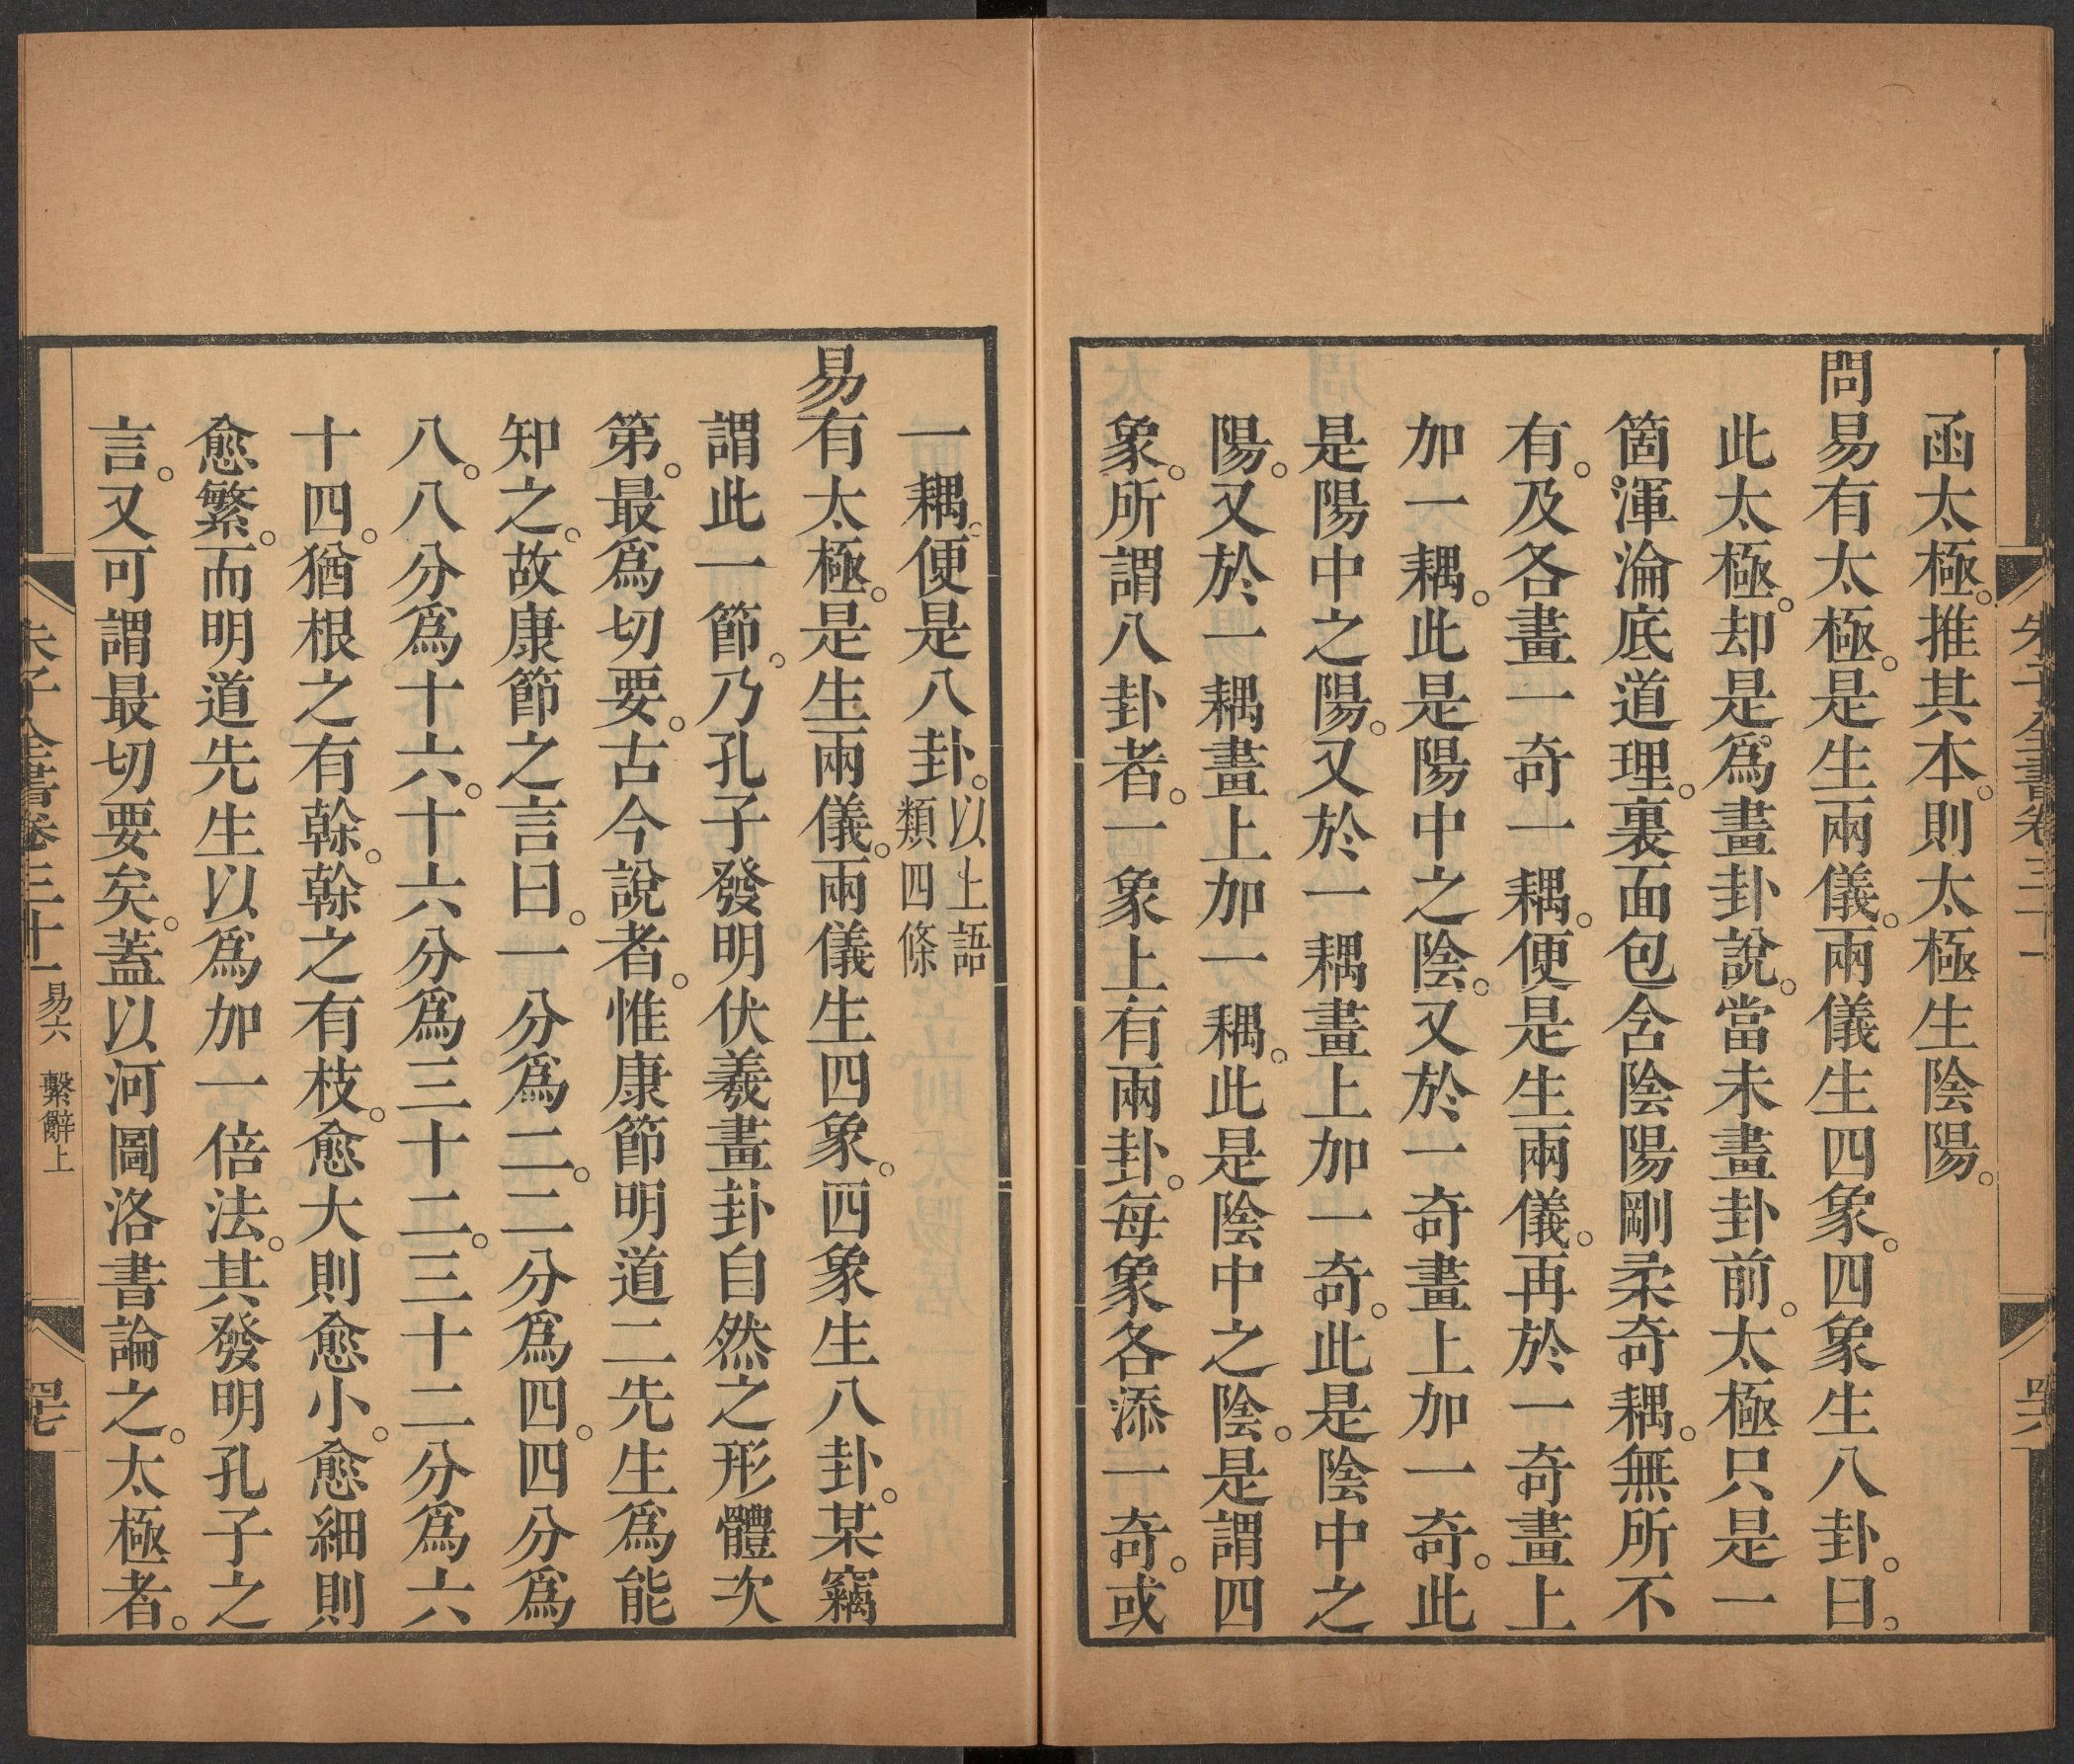 函太極。推其本。則太極生陰陽。
問易有太極。是生兩儀。兩儀生四象。四象生八卦。曰。
此太極。却是爲畫卦說。當未畫卦前。太極只是一
箇渾淪底道理。裏面包含陰陽剛柔奇耦。無所不
有。及各畫一奇一耦。便是生兩儀。再於一奇畫上
加一耦。此是陽中之陰。又於一奇畫上加一奇。此
是陽中之陽。又於一耦畫上加一奇。此是陰中之
陽。又於一耦畫上加一耦。此是陰中之陰。是謂四
象。所謂八卦者。一象上有兩卦。每象各添一奇。或
一耦。便是八卦。以上語類四條
易有太極。是生兩儀。兩儀生四象。四象生八卦。某竊
謂此一節。乃孔子發明伏羲畫卦自然之形體次
第。最爲切要。古今說者。惟康節明道二先生爲能
知之。故康節之言曰。一分爲二。二分爲四。四分爲
八。八分爲十六。十六分爲三十二。三十二分爲六
十四。猶根之有榦。榦之有枝。愈大則愈小。愈細則
愈繁。而明道先生以爲加一倍法。其發明孔子之
言。又可謂最切要矣。蓋以河圖洛書論之。太極者。
朱子全書卷三十一 易六 繫辭上